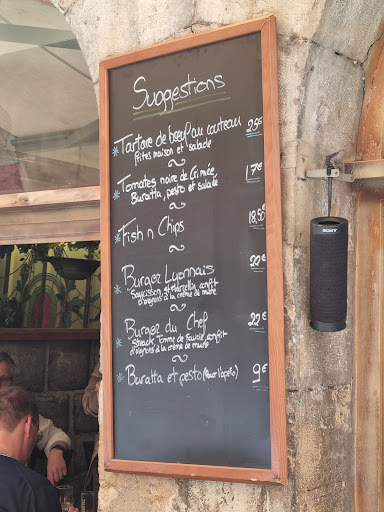 Suggestions
* Tartare de bœuf au couteau 25€
frites maison et salade
~
* Tomates noire de Crimée, 17€
Buratta, pesto et salade
~
* Fish n Chips 18,50€
~
Burger Lyonnais 22€
* Saucisson, St Marcellin, confit
d'oignons à la crème de mûre
Burger du Chef 22€
* Steack, Tomme de Savoie, confit
d'oignons à la crème de mûre
~
* Buratta et pesto (Pour l'apéro) 9€
SONY